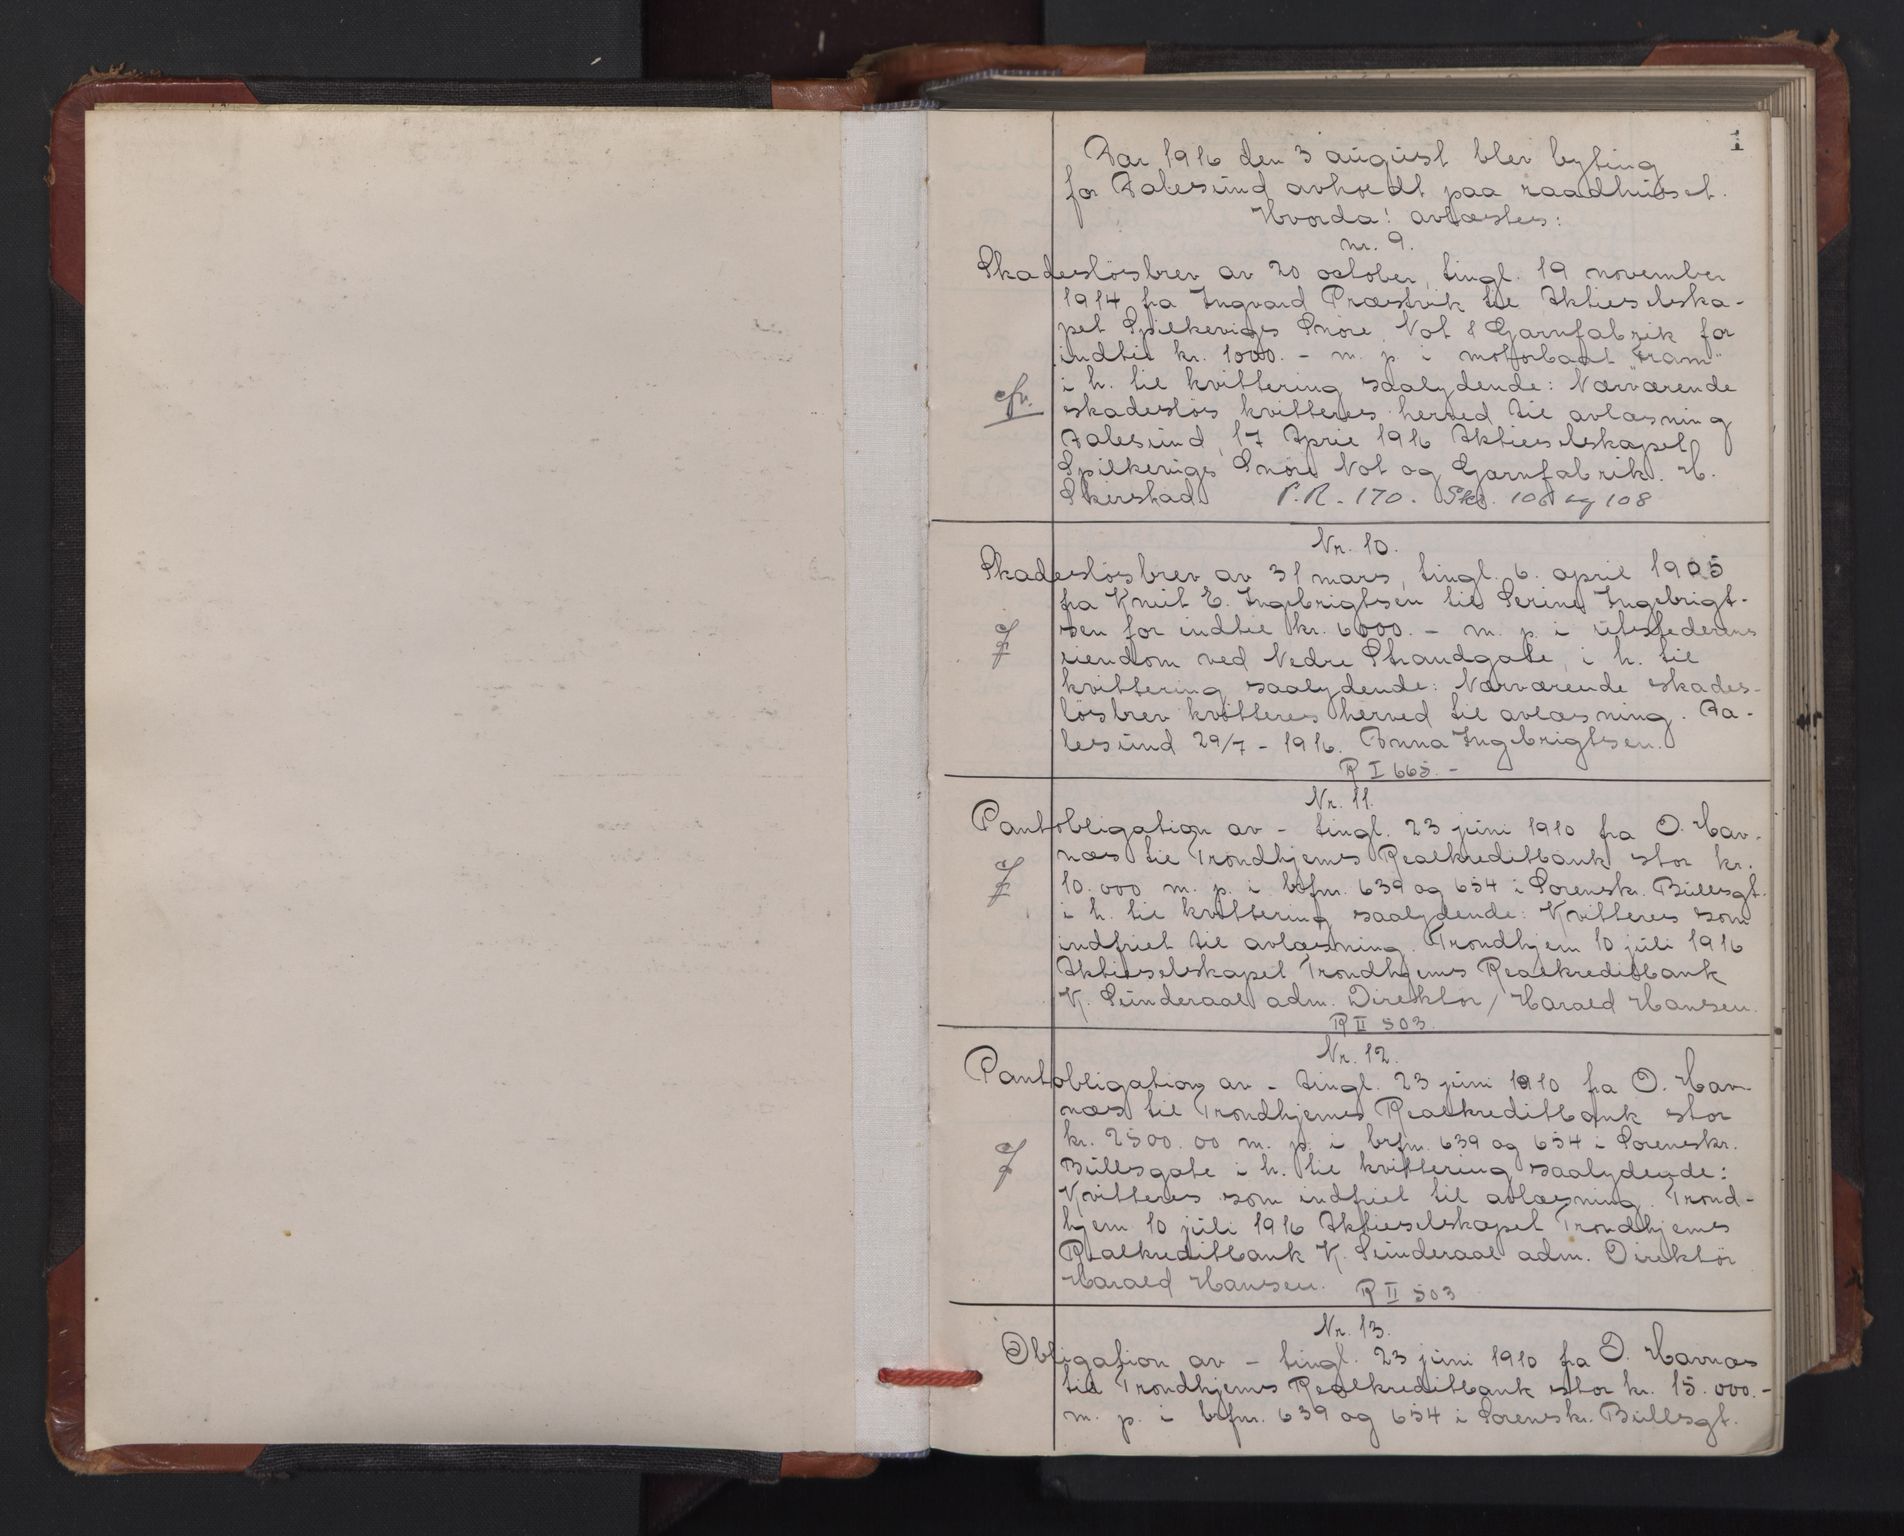 1
Aar 1916 den 3 august blev byting
for Aalesund avholdt paa raadhuset.
Hvorda! avlæstes:
nr. 9.
Skadesløsbrev av 20 october, tingl. 19 november
1914 fra Ingvard Præstvik til Aktieselska-
pet Spilkeviges Snøre, Not & Garnfabrik for
indtil kr. 1000.- m. p. i motorbaat "Fram"
i h. til kvittering saalydende: Nærværende
cfr.
skadesløs kvitteres herved til avlæsning
Aalesund, 17 April 1916 Aktieselskapet
Spilkeviges Snøre Not og Garnfabrik. H.
P.R. 170. Skr. 106 og 108
Nr. 10.
Skadesløsbrev av 31 mars, tingl. 6. april 1905
fra Knut E. Ingebrigtsen til Serine Ingebrigt-
sen for indtil kr. 6000.- m. p. i utstederens
eiendom ved Nedre Strandgate, i h. til
kvittering saalydende: Nærværende skades-
løsbrev kvitteres herved til avlæsning. Aa-
lesund 29/7 - 1916. Anna Ingebrigtsen.
R I 665.-
Nr. 11.
Pantobligation av - tingl. 23 juni 1910 fra O. Hav-
næs til Trondhjems Realkreditbank stor kr.
10.000 m. p. i brfm. 639 og 654 i Sorenskr. Bullsgt.
i h. til kvittering saalydende: Kvitteres som
indfriet til avlæsning. Trondhjem 10 juli 1916
Aktieselskapet Trondhjems Realkreditbank
K. Sunderaal adm. Direktør / Harald Hansen.
R II 503.
Nr. 12.
Pantobligation av - tingl. 23 juni 1910 fra O. Hav-
næs til Trondhjems Realkreditbank stor
kr. 2500.00 m. p. i brfm. 639 og 654 i Sorenskr.
Bullsgate i h. til kvittering saalydende:
Kvitteres som indfriet til avlæsning. Trond-
hjem 10 juli 1916 Aktieselskapet Trondhjems
Realkreditbank K. Sunderaal adm. Direktør
Harald Hansen. R II 503
Nr. 13.
Obligation av - tingl. 23 juni 1910 fra O. Havnæs
til Trondhjems Realkreditbank stor kr. 15.000.-
m. p. i brfm. 639 og 654 i Sorenskr. Bullsgt.